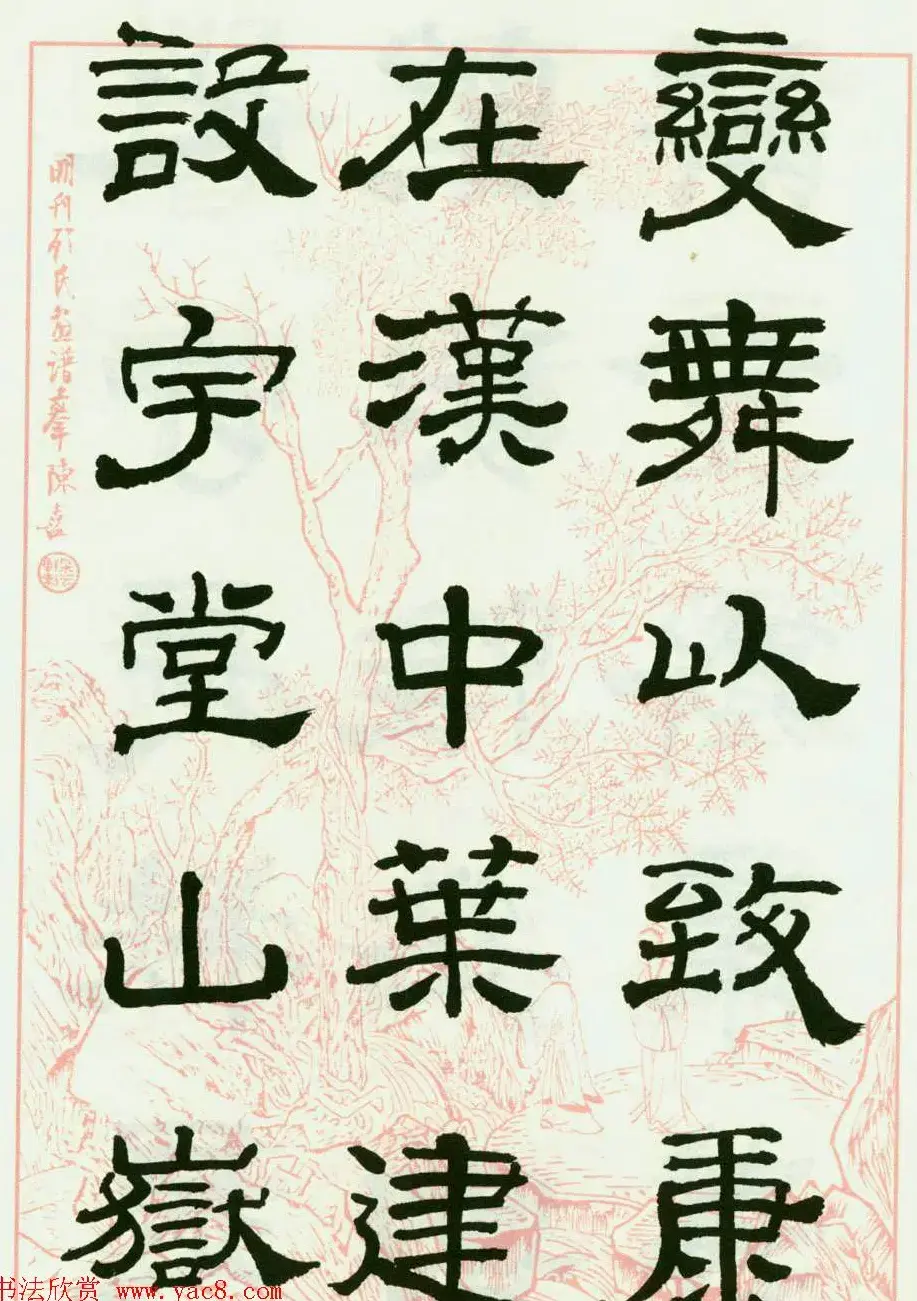 變舞以致康
在漢中葉建
設宇堂山嶽
明刊顧氏畫譜摹陳喜
书法欣赏 www.yac8.com